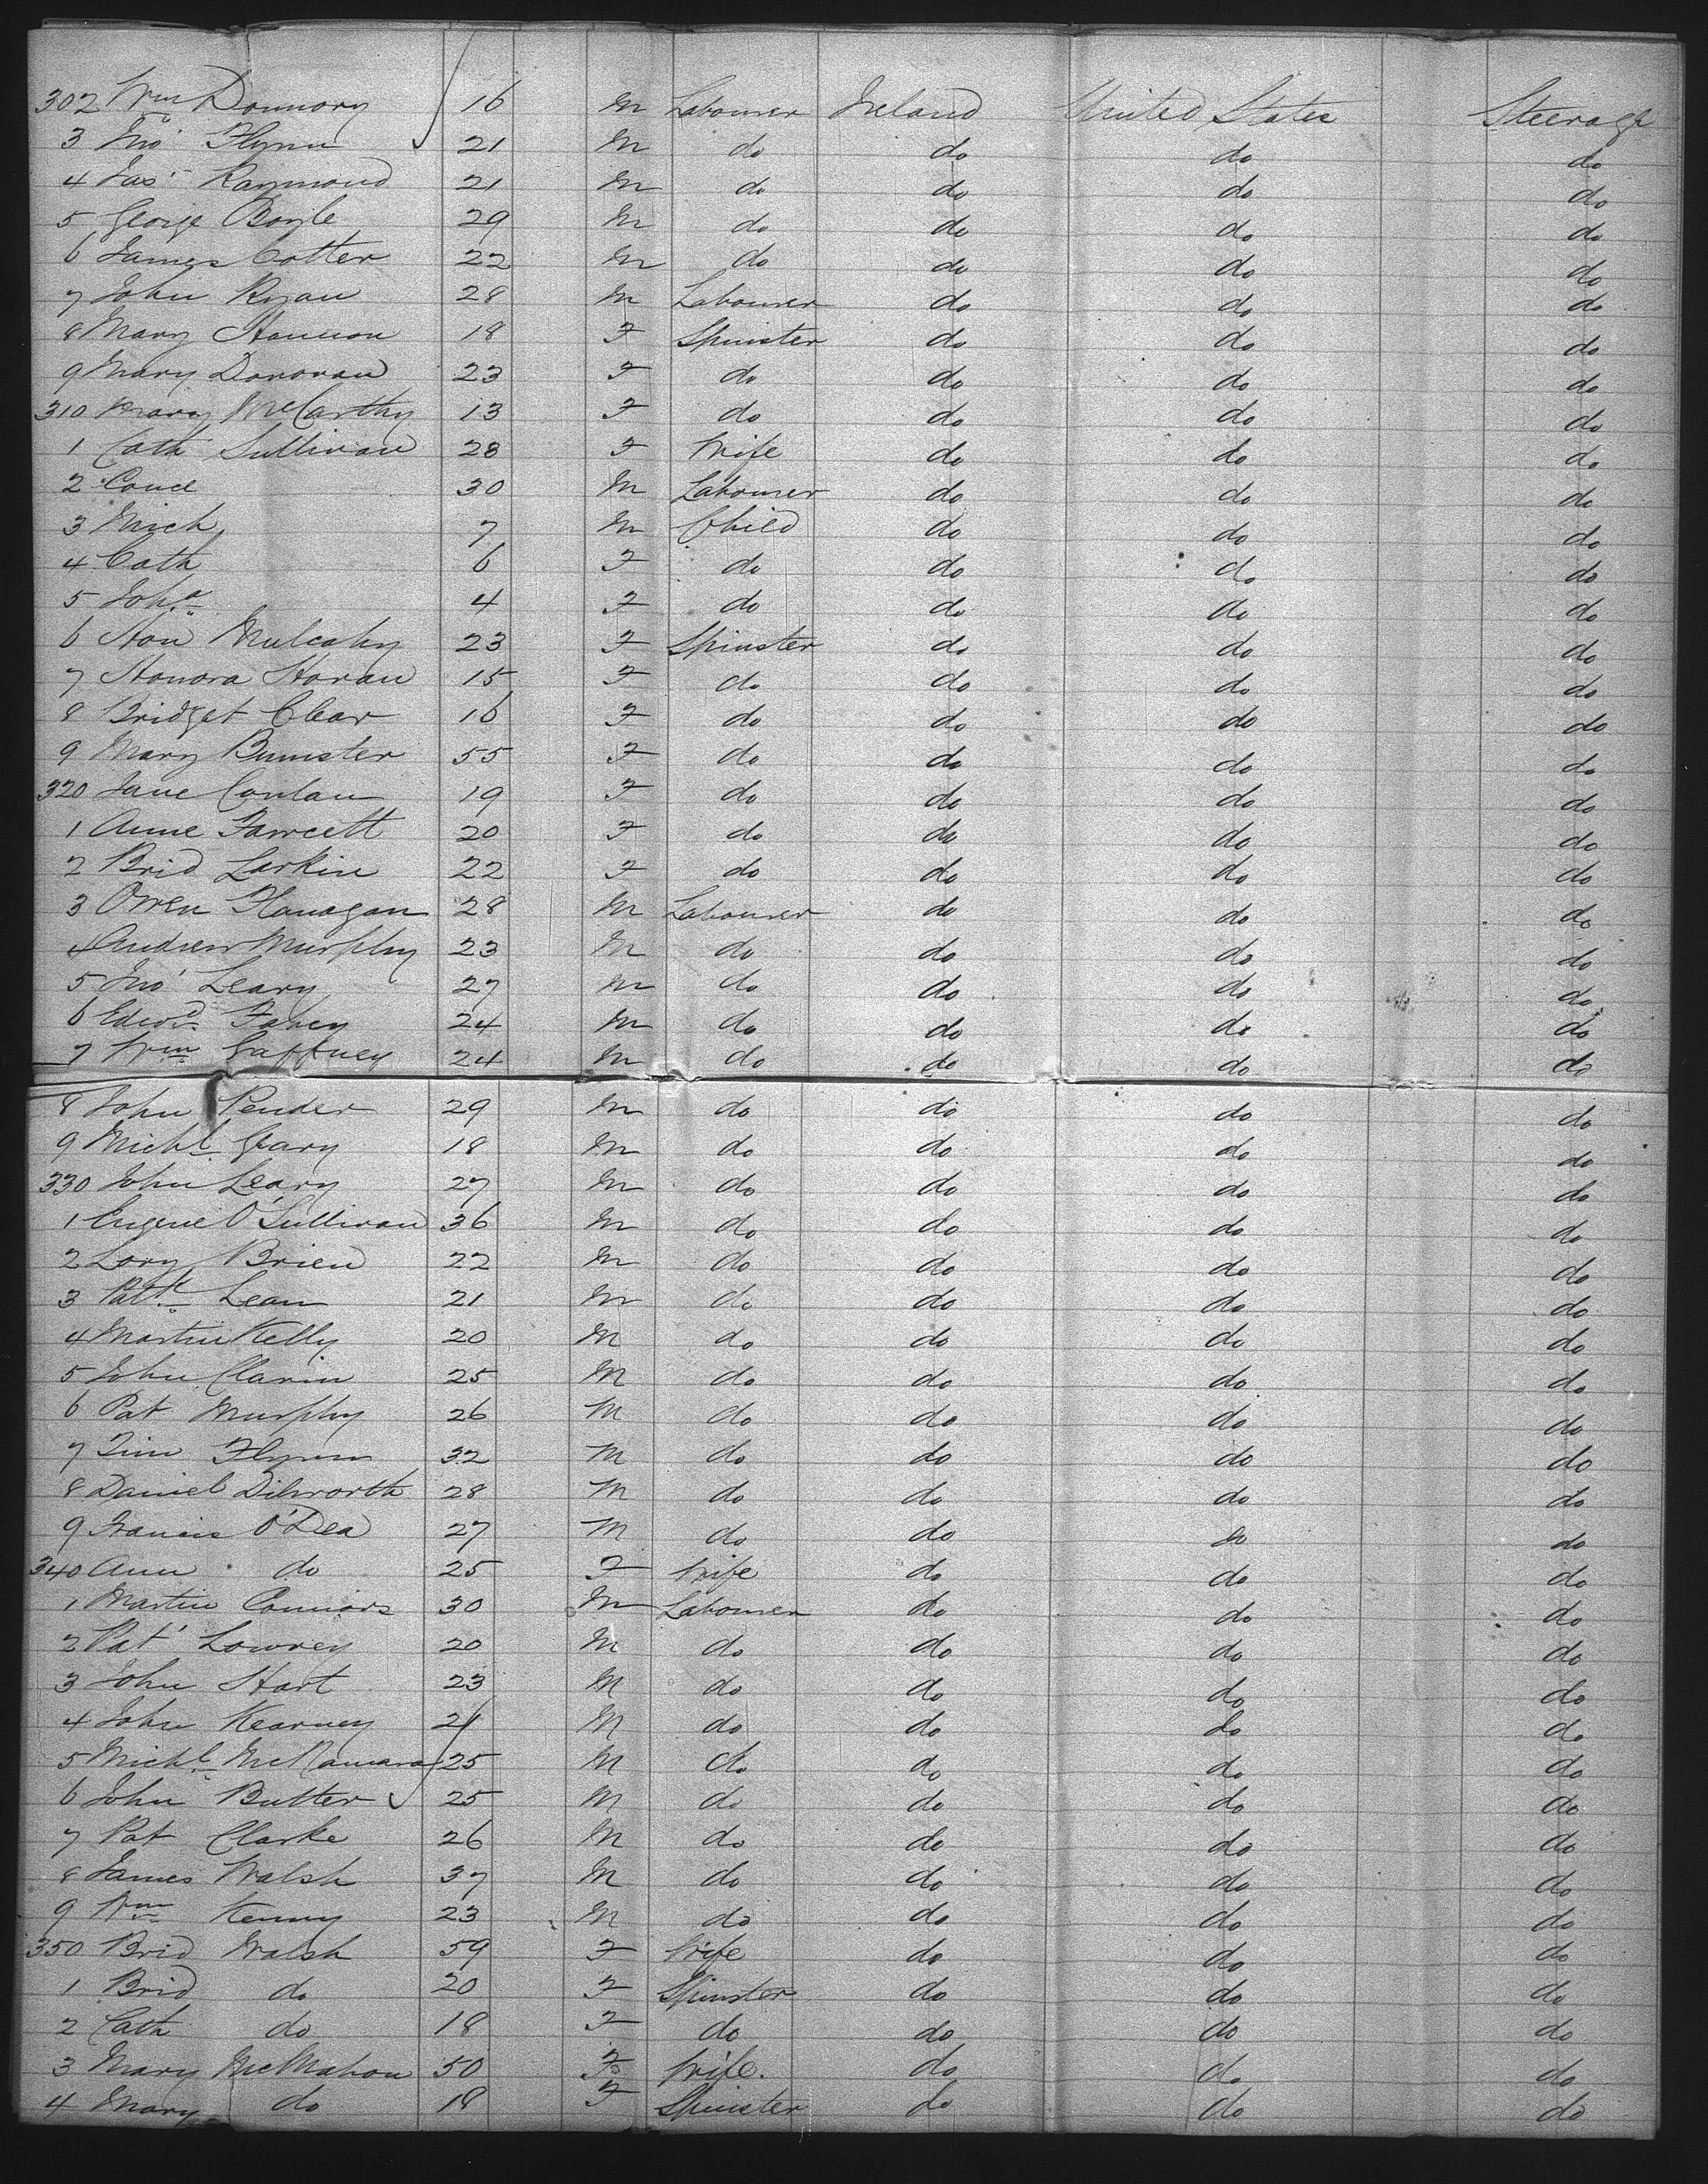 302 Wm Donnory 16 M Labourer Ireland United States Steerage
3 Jno Flynn 21 M do do do do
4 Jas Raymond 21 M do do do do
5 George Boyle 29 M do do do do
6 James Cotter 22 M do do do do
7 John Ryan 28 M Labourer do do do
8 Mary Hannon 18 F Spinster do do do
9 Mary Donovan 23 F do do do do
310 Mary McCarthy 13 F do do do do
1 Cath Sullivan 28 F Wife do do do
2 30 M Labourer do do do
3 Mich 7 M Child do do do
4 Cath 6 F do do do do
5 Joha 4 F do do do do
6 Hon Mulcahy 23 F Spinster do do do
7 Honora Horan 15 F do do do do
8 Bridget Clear 16 F do do do do
9 Mary Bumster 55 F do do do do
320 Jane Conlan 19 F do do do do
1 Anne Fawcett 20 F do do do do
2 Brid Larkin 22 F do do do do
3 Owen Flanagan 28 M Labourer do do do
4 Andrew Murphy 23 M do do do do
5 Jno Leary 27 M do do do do
6 Edwd Fahey 24 M do do do do
7 Wm Gaffney 24 M do do do do
8 John Pender 29 M do do do do
9 Michl Geary 18 M do do do do
330 John Leary 27 M do do do do
1 Eugene O'Sullivan 36 M do do do do
2 Lory Brien 22 M do do do do
3 Patk Leam 21 M do do do do
4 Martin Kelly 20 M do do do do
5 John Clavin 25 M do do do do
6 Pat Murphy 26 M do do do do
7 Tim Flynn 32 M do do do do
8 Daniel Dilworth 28 M do do do do
9 Francis O'Dea 27 M do do do do
340 Ann do 25 F Wife do do do
1 Martin Connors 30 M Labourer do do do
2 Pat Lowrey 20 M do do do do
3 John Hart 23 M do do do do
4 John Kearney 21 M do do do do
5 Michl McNamara 25 M do do do do
6 John Butter 25 M do do do do
7 Pat Clarke 26 M do do do do
8 James Walsh 37 M do do do do
9 Wm Kenny 23 M do do do do
350 Brid Walsh 59 F Wife do do do
1 Brid do 20 F Spinster do do do
2 Cath do 18 F do do do do
3 Mary McMahon 50 F Wife. do do do
4 Mary do 18 F Spinster do do do